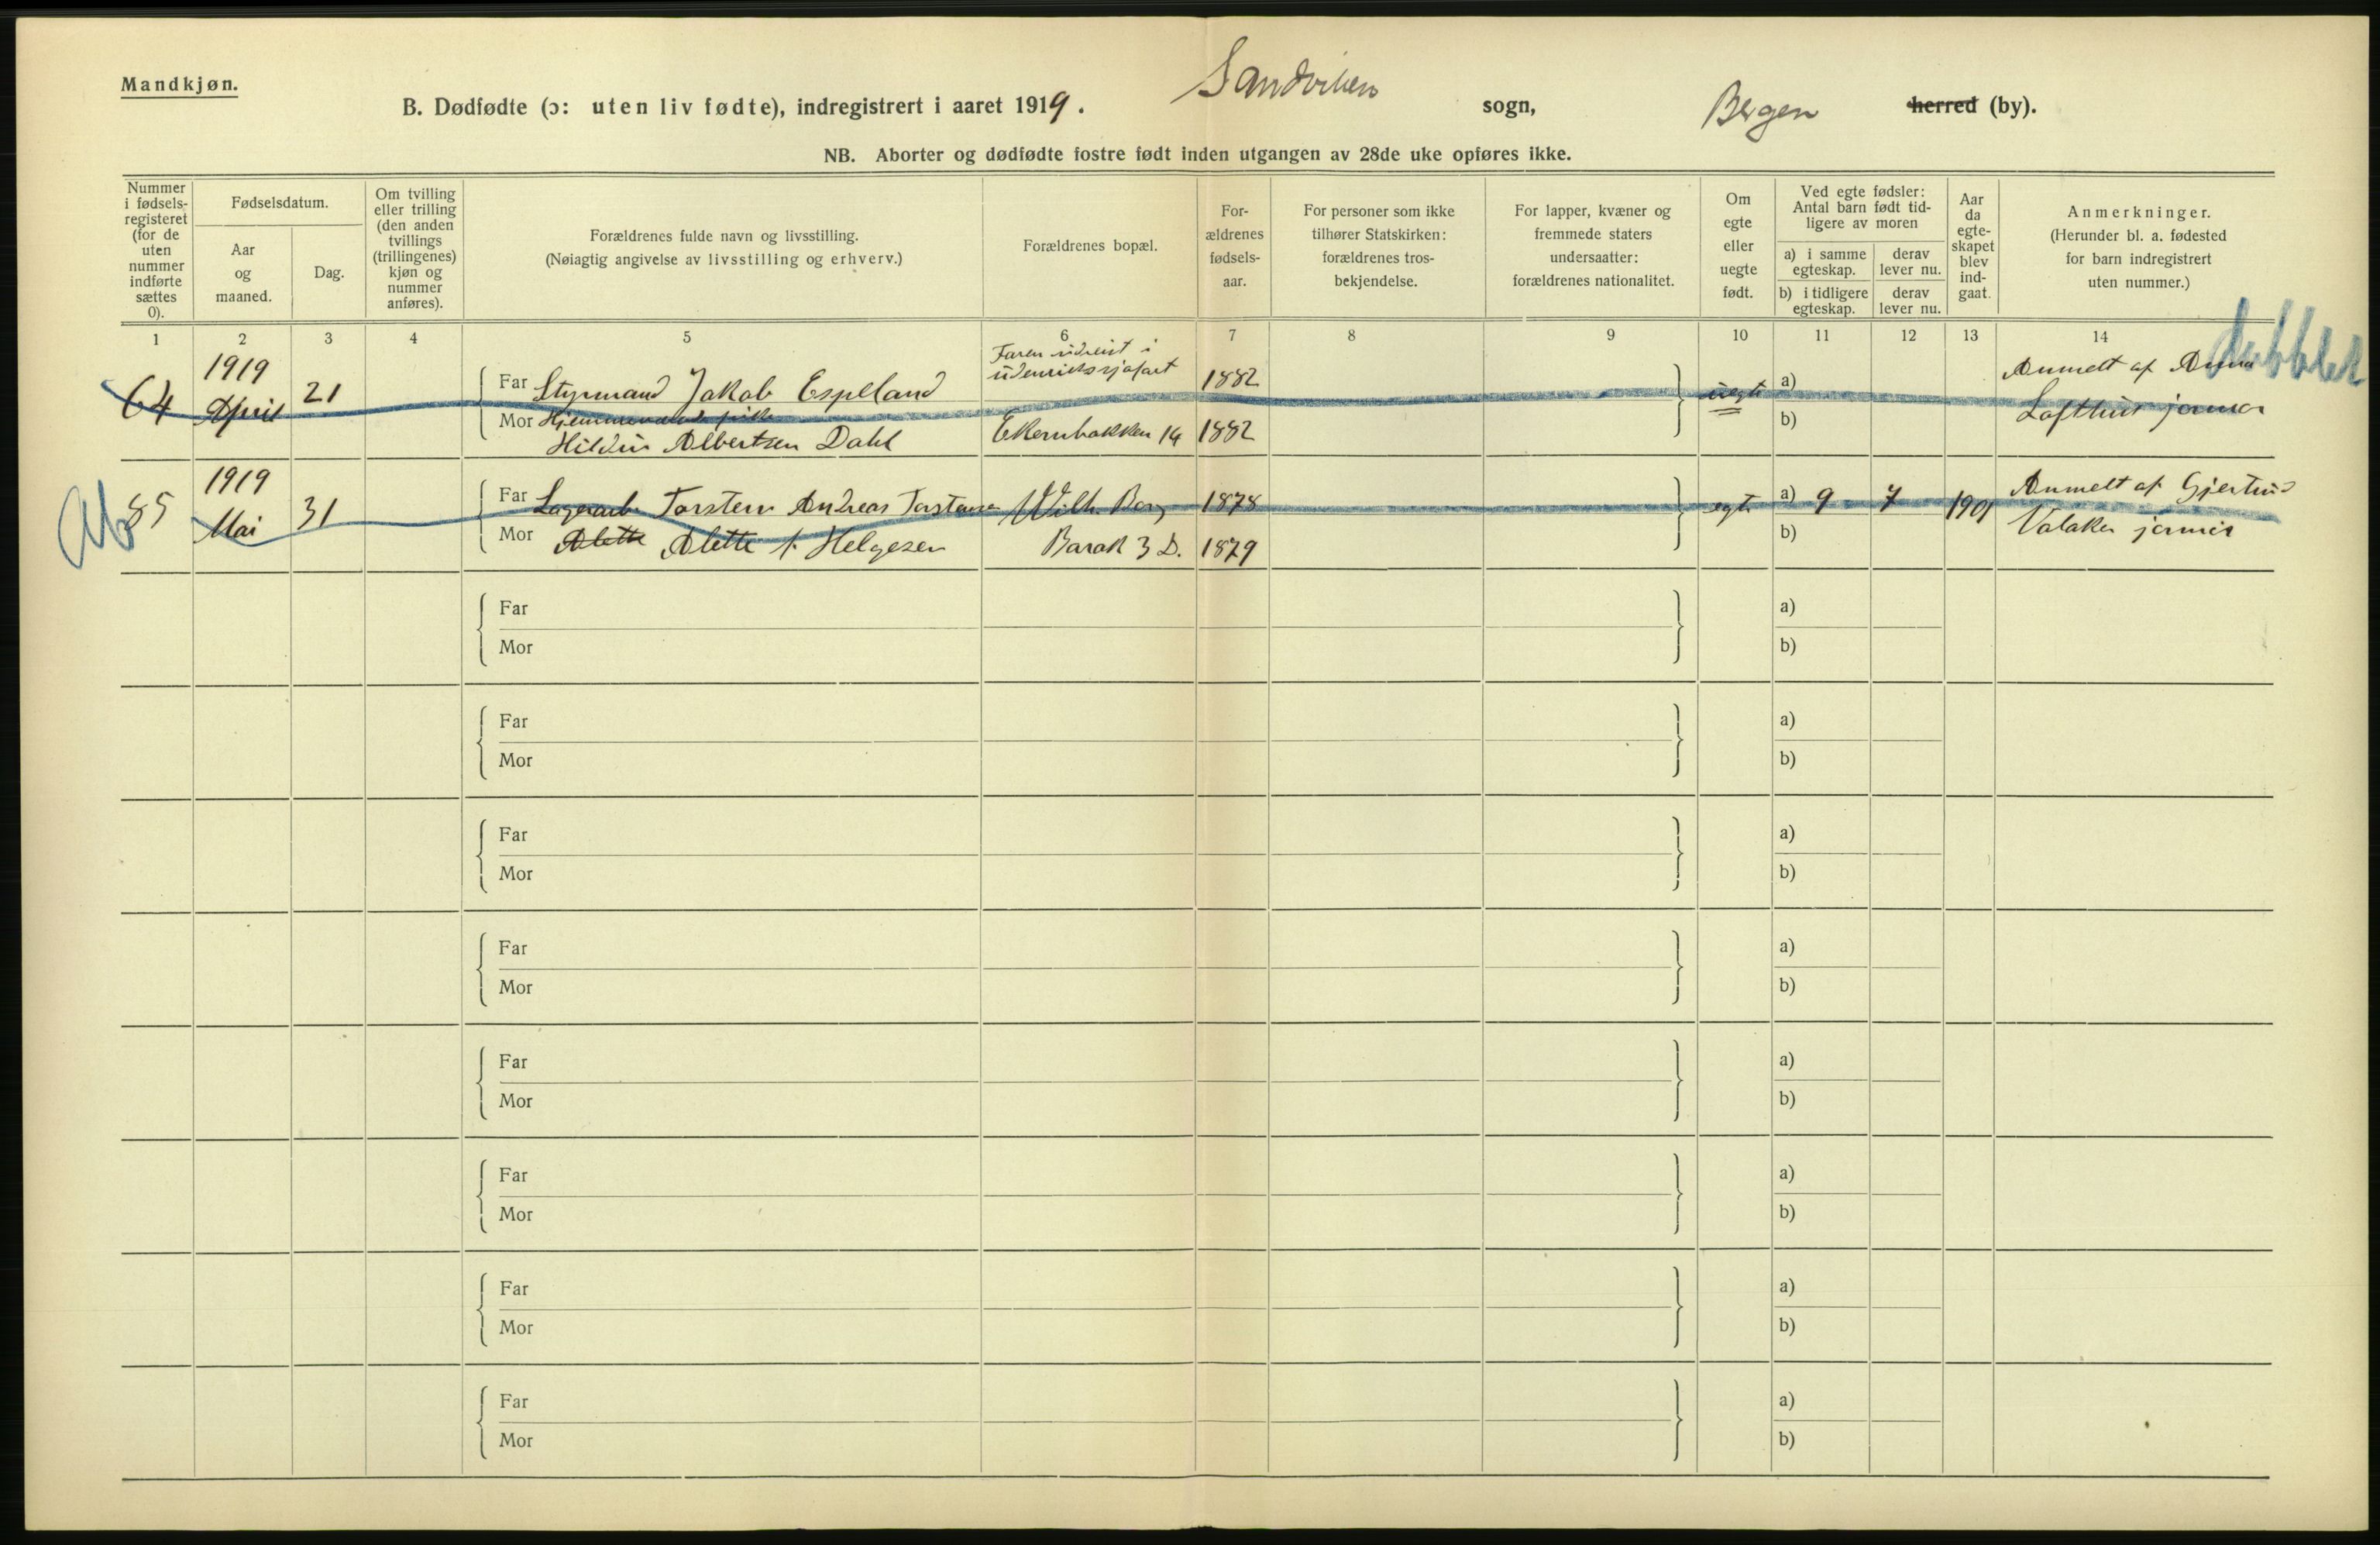 Mandkjøn.
B. Dødfødte (ɔ: uten liv fødte), indregistrert i aaret 1919. Sandviken sogn, Bergen herred (by).
NB. Aborter og dødfødte fostre født inden utgangen av 28de uke opføres ikke.
Nummer i fødsels-registeret (for de uten nummer indførte sættes 0).
Fødselsdatum.
Aar og maaned.
Dag.
Om tvilling eller trilling (den anden tvillings (trillingenes) kjøn og nummer anføres).
Forældrenes fulde navn og livsstilling.
(Nøiagtig angivelse av livsstilling og erhverv.)
Forældrenes bopæl.
For-ældrenes fødsels-aar.
For personer som ikke tilhører Statskirken: forældrenes tros-bekjendelse.
For lapper, kvæner og fremmede staters undersaatter: forældrenes nationalitet.
Om egte eller uegte født.
Ved egte fødsler: Antal barn født tid-ligere av moren
a) i samme egteskap.
derav lever nu.
b) i tidligere egteskap.
derav lever nu.
Aar da egte-skapet blev ind-gaat.
Anmerkninger.
(Herunder bl. a. fødested for barn indregistrert uten nummer.)
1 2 3 4 5 6 7 8 9 10 11 12 13 14
dubblet
1919 Faren udreist i
64 April 21 Far Styrmand Jakob Espeland udenriks sjøfart 1882 uegte a) Anmelt af Anna
Mor Hjemmeværende pike b) Lofthus jormor
Hildur Albertsen Dahl Ekernbakken 14 1882
1919
Ab 85 Mai 31 Far Lagerarb. Torsten Andreas Torstensen Wilh. Berg 1878 egte a) 9 7 1901 Anmelt af Gjertrud
Mor Alette Alette f. Helgesen Barak 3 D. 1879 b) Valaker jormor
Far a)
Mor b)
Far a)
Mor b)
Far a)
Mor b)
Far a)
Mor b)
Far a)
Mor b)
Far a)
Mor b)
Far a)
Mor b)
Far a)
Mor b)